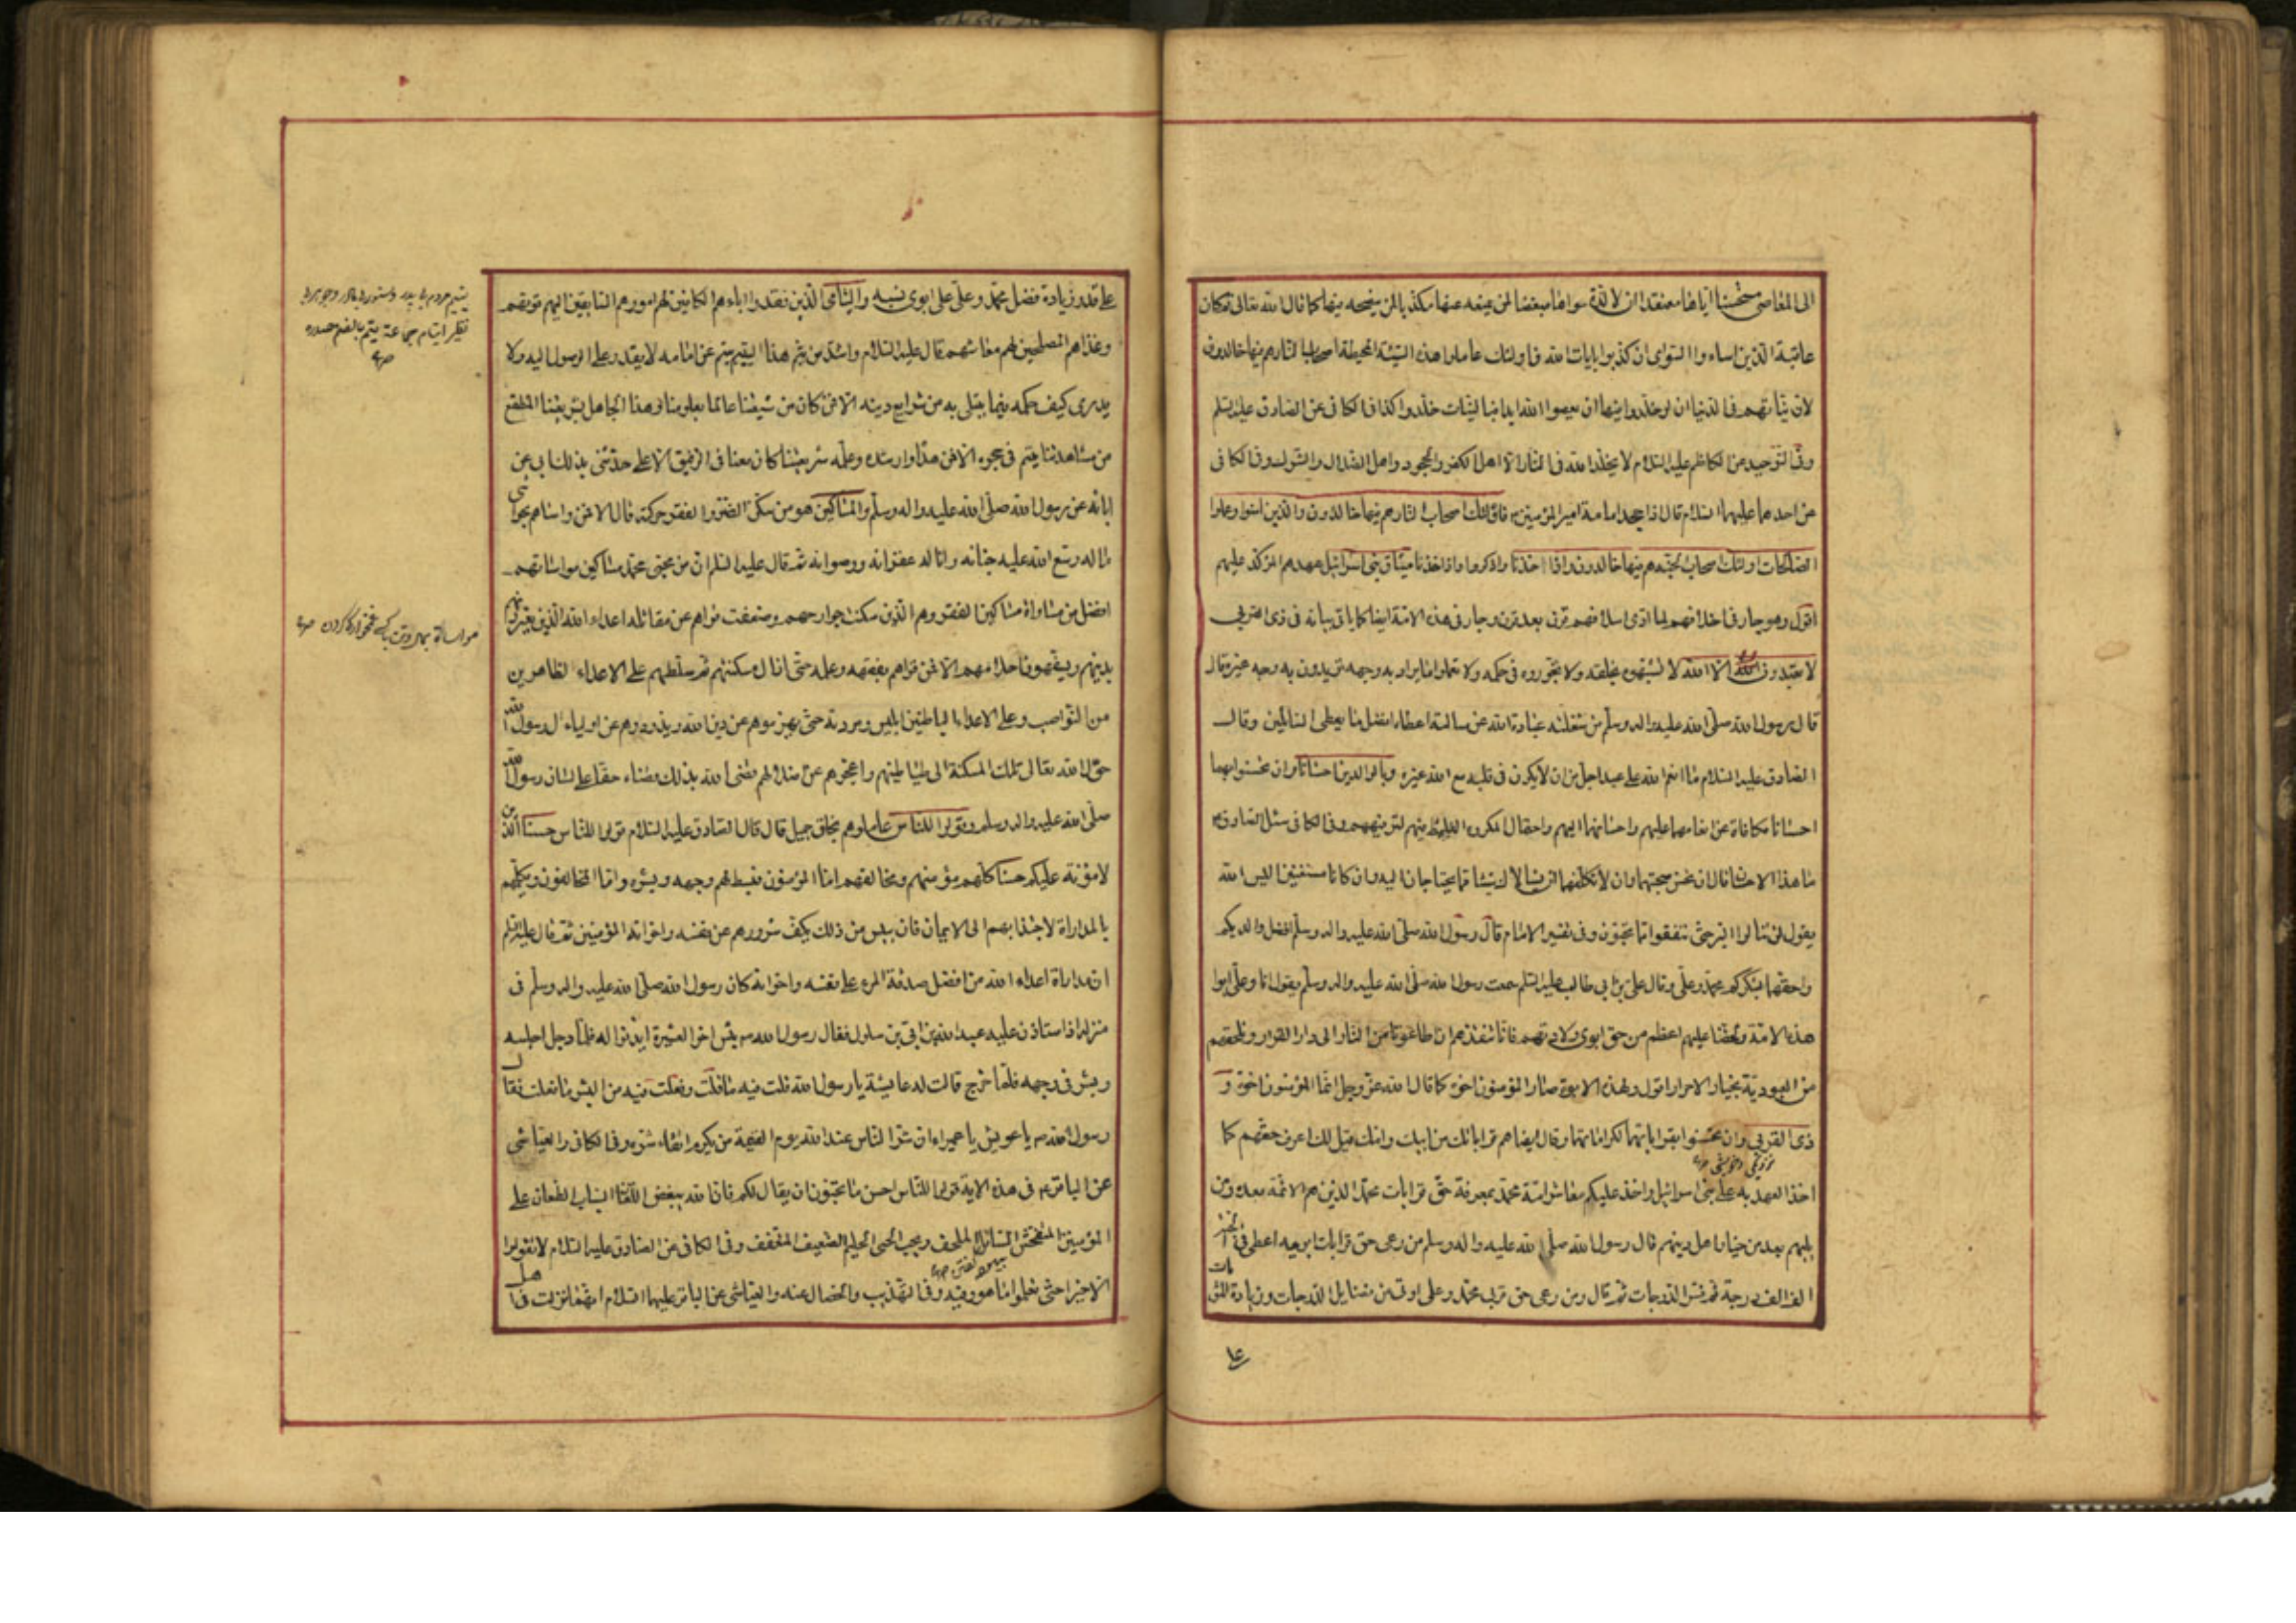 الى المعاصى مستحسنا اياها معتقدا ان لا لذة سواها مبغضا لمن يمنعه عنها مكذبا لمن ينصحه فيها كما قال الله تعالى ثم كان
عاقبة الذين اساءوا السوأى ان كذبوا بايات الله فاولئك عاملوا هذه السيئة المحيطة اصحاب النار هم فيها خالدون
لان نياتهم فى الدنيا ان لو خلدوا فيها ان يعصوا الله ابدا فبالنيات خلدوا كذا فى الكافى عن الصادق عليه السلم
وفى التوحيد عن الكاظم عليه السلام لا يخلد الله فى النار الا اهل الكفر والجحود واهل الضلال والشرك وفى الكافى
عن احدهما عليهما السلام قال اذا جحد امامة امير المؤمنين فاولئك اصحاب النار هم فيها خالدون والذين امنوا وعملوا
الصالحات اولئك اصحاب الجنة هم فيها خالدون واذ اخذنا واذكروا اذ اخذنا ميثاق بنى اسرائيل عهدهم المؤكد عليهم
اقول وهو جار فى اخلافهم لما ادى اسلافهم قرن بعد قرن وجار فى هذه الامة ايضا كما ياتى بيانه فى ذى القربى
لا تعبدون الا الله لا تشبهوه بخلقه ولا تجوروه فى حكمه ولا تعملوا ما يراد به وجهه تريدون به وجه غيره قال
قال رسول الله صلى الله عليه واله وسلم من شغلته عبادة الله عن مسالته اعطاه افضل ما يعطى السائلين وقال
الصادق عليه السلام ما انعم الله على عبد اجل من ان لا يكون فى قلبه مع الله غيره وبالوالدين احسانا وان تحسنوا بهما
احسانا مكافاة عن انعامهما عليهم واحسانهما اليهم واحتمال المكروه الغليظ فيهم لترفيههم وفى الكافى سئل الصادق
ما هذا الاحسان قال ان تحسن صحبتهما وان لا تكلفهما ان يسالاك شيئا مما يحتاجان اليه وان كانا مستغنيين اليس الله
يقول لن تنالوا البر حتى تنفقوا مما تحبون وفى تفسير الامام قال رسول الله صلى الله عليه واله وسلم افضل والديكم
واحقهما بشكركم محمد وعلى وقال على بن ابى طالب عليه السلم سمعت رسول الله صلى الله عليه واله وسلم يقول انا وعلى ابوا
هذه الامة ولحقنا عليهم اعظم من حق ابوى ولادتهم فانا ننقذهم ان اطاعونا من النار الى دار القرار ونلحقهم
من العبودية بخيار الاحرار اقول ولهذه الابوة صار المؤمنون اخوة كما قال الله عز وجل انما المؤمنون اخوة و
ذى القربى وان تحسنوا بقراباتهما لكرامتهما وقال ايضا هم قراباتك من ابيك وامك قيل لك اعرف حقهم كما
نزديكى وخويشى
اخذ العهد به على بنى اسرائيل واخذ عليكم معاشر امة محمد بمعرفة حق قرابات محمد الذين هم الائمة بعده ومن
يليهم بعد من خيار اهل دينهم قال رسول الله صلى الله عليه واله وسلم من رعى حق قرابات ابويه اعطى فى الجنة
الف الف درجة ثم فسر الدرجات ثم قال ومن رعى حق قربى محمد وعلى اوتى من فضايل الدرجات وزيادة المثوبات
على قدر زيادة فضل محمد وعلى على ابوى نسبه واليتامى الذين فقدوا اباءهم الكافين لهم امورهم السابقين اليهم قوتهم
وغذاهم المصلحين لهم معاشهم قال عليه السلام واشد من يتم هذا اليتيم يتم عن امامه لا يقدر على الوصول اليه ولا
يدرى كيف حكمه فيما يبتلى به من شرايع دينه الا فمن كان من شيعتنا عالما بعلومنا فهذا الجاهل بشريعتنا المنقطع
من مشاهدتنا يتيم فى حجره الا فمن هداه وارشده وعلمه شريعتنا كان معنا فى الرفيق الاعلى حدثنى بذلك ابى عن
ابائه عن رسول الله صلى الله عليه واله وسلم والمساكين هو من سكن الضر والفقر حركته قال الا فمن واساهم بحواشى
ماله وسع الله عليه جنانه واناله غفرانه ورضوانه ثم قال عليه السلم ان من محبى محمد مساكين مواساتهم
افضل من مساواة مساكين الفقر وهم الذين سكنت جوارحهم وضعفت قواهم عن مقاتلة اعداء الله الذين يعيرونهم
بدينهم ويسفهون احلامهم الا فمن قواهم بفقهه وعلمه حتى ازال مسكنتهم ثم سلطهم على الاعداء الظاهرين
من النواصب وعلى الاعداء الباطنين ابليس ومردته حتى يهزموهم عن دين الله ويذودوهم عن اولياء ال رسول الله
حول الله تعالى تلك المسكنة الى شياطينهم واعجزهم عن اضلالهم قضى الله بذلك قضاء حقا على لسان رسول الله
صلى الله عليه واله وسلم وقولوا للناس عاملوهم بخلق جميل قال قال الصادق عليه السلام قولوا للناس حسنا الذين
لا مؤنة عليكم حسنا كلهم مؤمنهم ومخالفهم اما المؤمنون فيبسط لهم وجهه وبشره واما المخالفون ويكلمهم
بالمداراة لاجتذابهم الى الايمان فان يياس من ذلك يكف شرورهم عن نفسه واخوانه المؤمنين ثم قال عليه السلم
ان مداراة اعداء الله من افضل صدقة المرء على نفسه واخوانه كان رسول الله صلى الله عليه واله وسلم فى
منزله اذ استاذن عليه عبد الله بن ابى بن سلول فقال رسول الله بئس اخو العشيرة ايذنوا له فلما دخل اجلسه
وبشر فى وجهه فلما خرج قالت له عايشة يا رسول الله قلت فيه ما قلت وفعلت فيه من البشر ما فعلت فقال
رسول الله يا عويش يا حميراء ان شر الناس عند الله يوم القيمة من يكرم اتقاء شره وفى الكافى والعياشى
عن الباقر فى هذه الاية قولوا للناس احسن ما تحبون ان يقال لكم فان الله يبغض اللعان السباب الطعان على
المؤمنين المتفحش السائل الملحف ويحب الحيى الحليم الضعيف المتعفف وفى الكافى عن الصادق عليه السلام لا تقولوا
الا خيرا حتى تعلموا ما هو وفيه وفى التهذيب والخصال عنه والعياشى عن الباقر عليهما السلام انها نزلت فى اهل
نظير ايتام جماعة يتم بالضم مصدر
مواساة